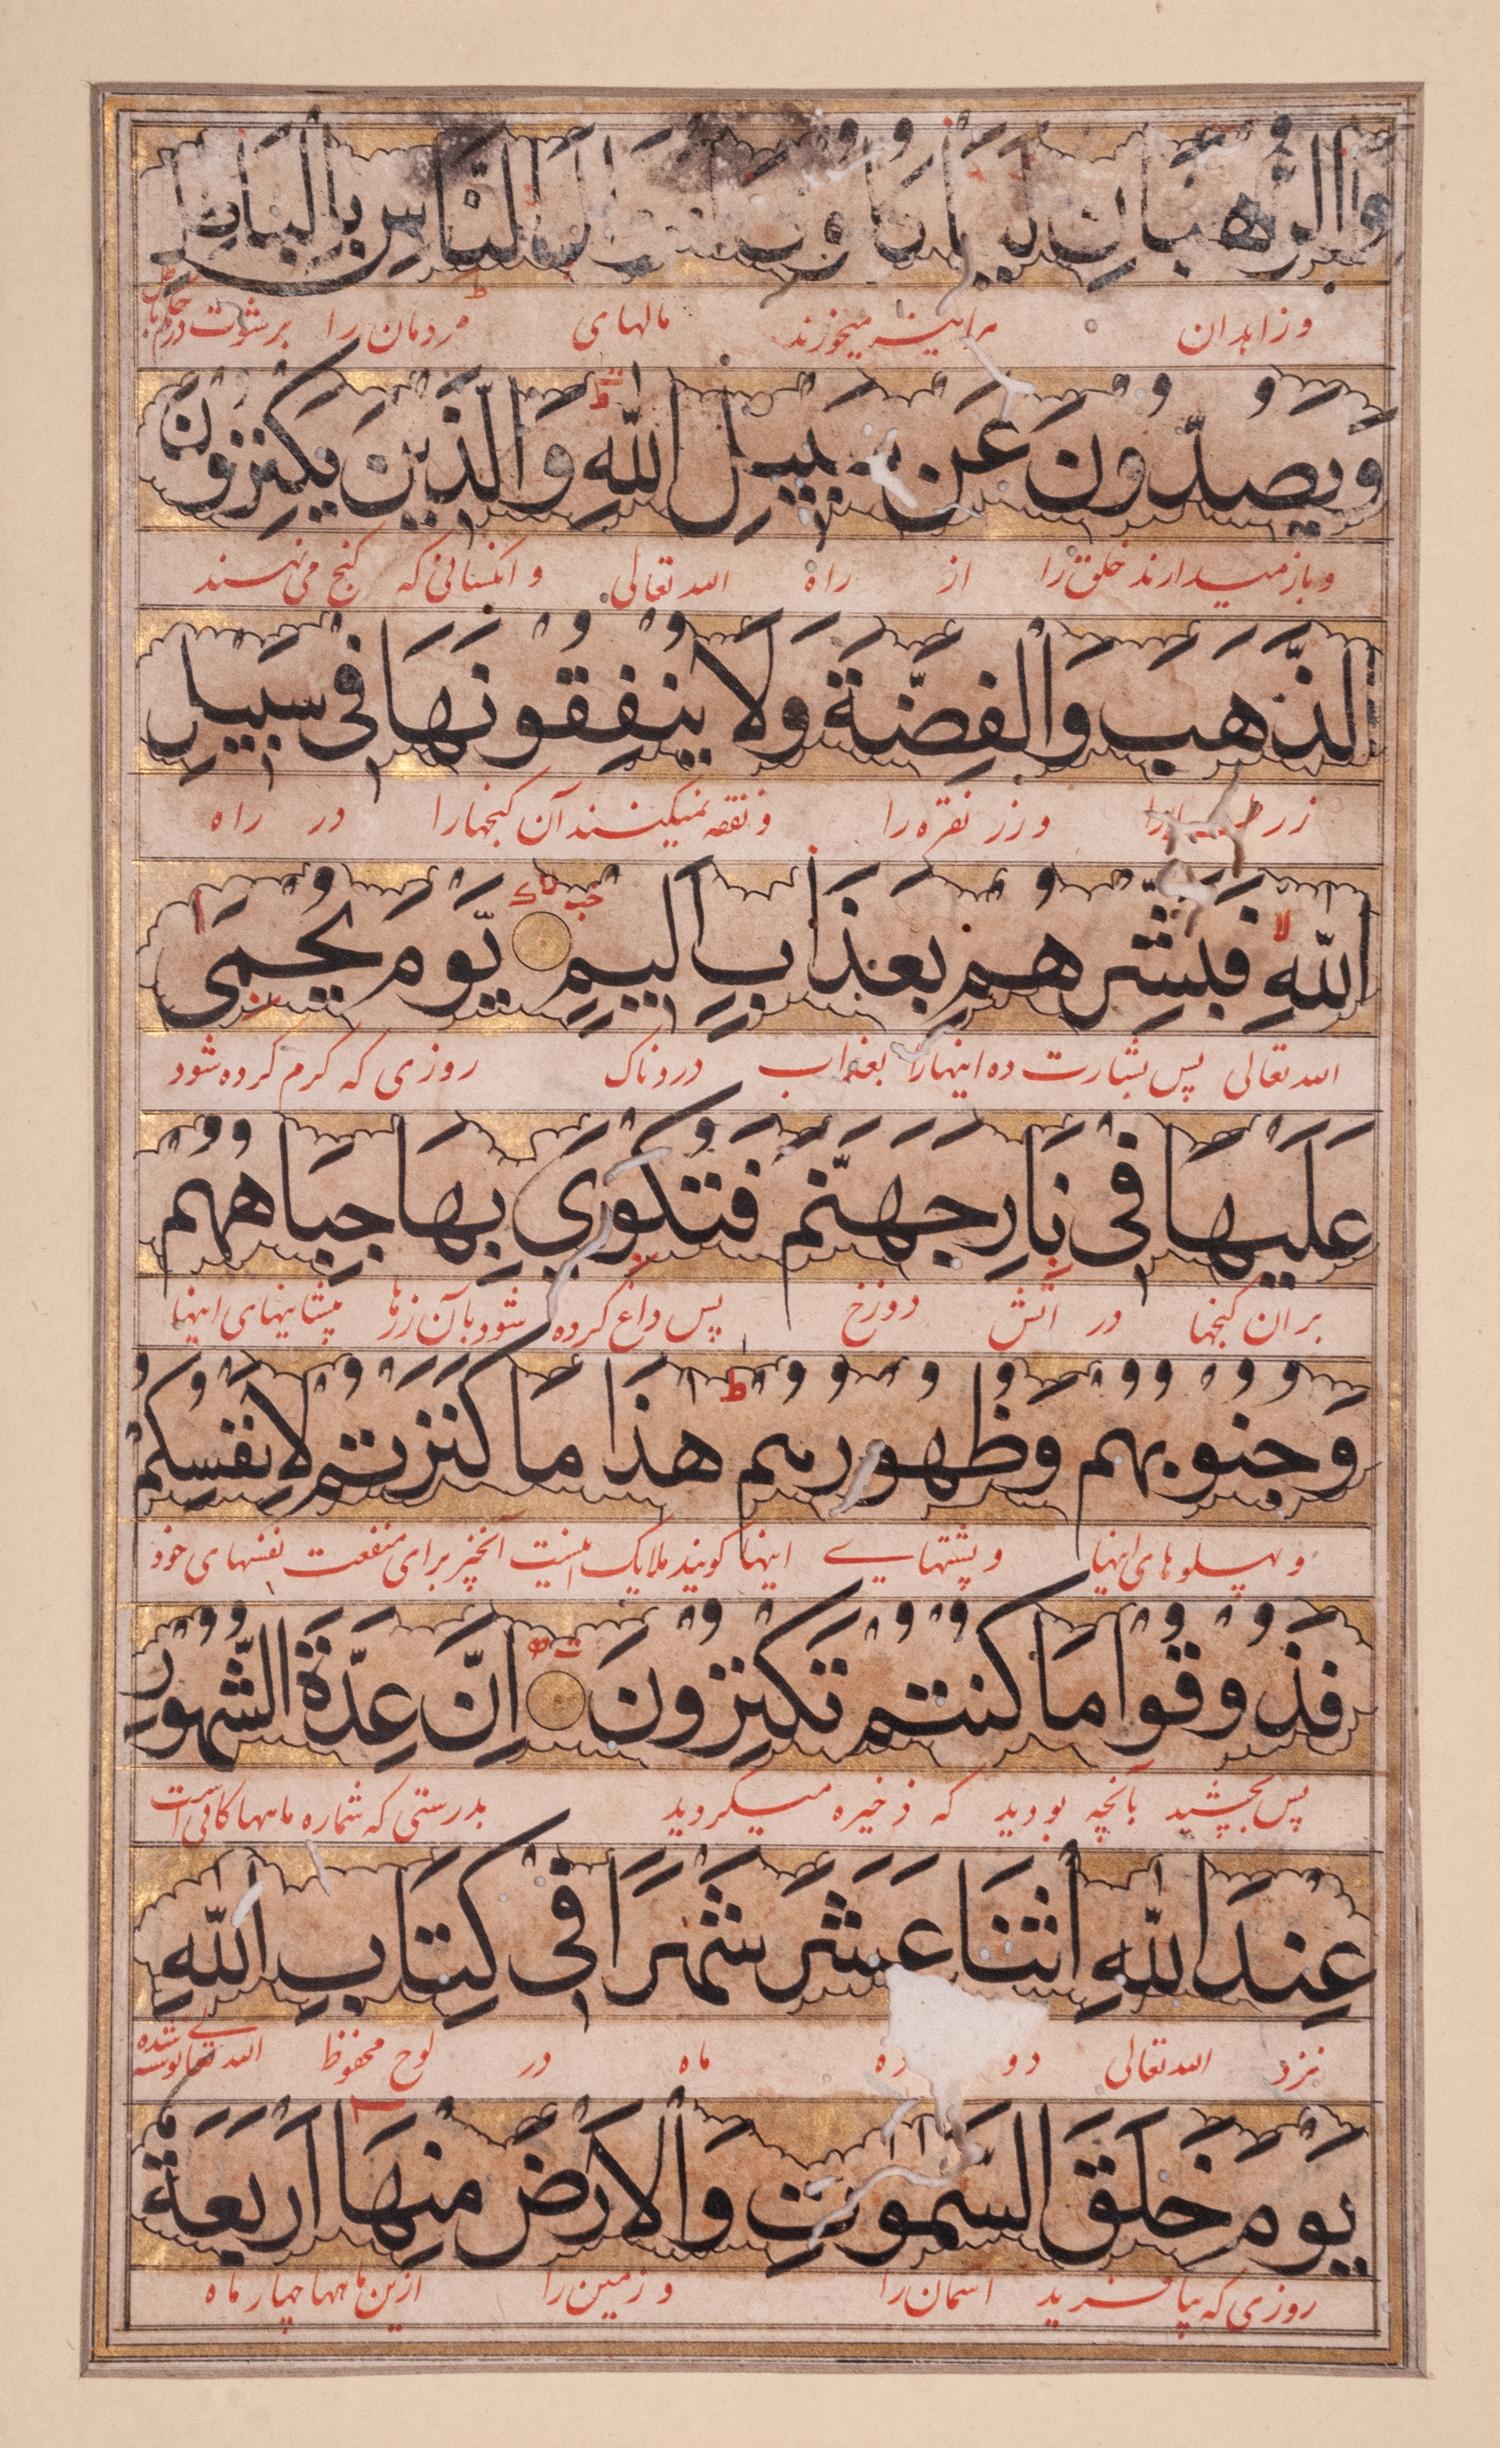 وَالرُّهْبَانِ لَيَأْكُلُونَ أَمْوَالَ النَّاسِ بِالْبَاطِلِ
و زاهدان هرآینه میخورند مالهای مردمان را برشوت در حکم
وَيَصُدُّونَ عَنْ سَبِيلِ اللّٰهِ وَالَّذِينَ يَكْنِزُونَ
و بازمیدارند خلق را از راه الله تعالی و آنکسانی که گنج می نهند
الذَّهَبَ وَالْفِضَّةَ وَلَا يُنْفِقُونَهَا فِي سَبِيلِ
زر و زر نقره را و نفقه نمیکنند آن گنجها را در راه
اللّٰهِ فَبَشِّرْهُمْ بِعَذَابٍ أَلِيمٍ يَّوْمَ يُحْمَى
الله تعالی پس بشارت ده اینها را بعذاب دردناک روزی که گرم کرده شود
عَلَيْهَا فِي نَارِ جَهَنَّمَ فَتُكْوَى بِهَا جِبَاهُهُمْ
بران گنجها در آتش دوزخ پس داغ کرده شود بآن زرها پیشانیهای اینها
وَجُنُوبُهُمْ وَظُهُورُهُمْ هَذَا مَا كَنَزْتُمْ لِأَنْفُسِكُمْ
و پهلوهای اینها و پشتهای اینها گویند ملایک اینست آنچیز برای منفعت نفسهای خود
فَذُوقُوا مَا كُنْتُمْ تَكْنِزُونَ إِنَّ عِدَّةَ الشُّهُورِ
پس بچشید بآنچه بودید که ذخیره میکردید بدرستی که شماره ماهها کافی است
عِنْدَ اللّٰهِ اثْنَا عَشَرَ شَهْرًا فِي كِتَابِ اللّٰهِ
نزد الله تعالی دو ده ماه در لوح محفوظ الله
يَوْمَ خَلَقَ السَّمٰوٰتِ وَالْأَرْضَ مِنْهَا أَرْبَعَةٌ
روزی که بیافرید آسمان را و زمین را ازین ماهها چهار ماه